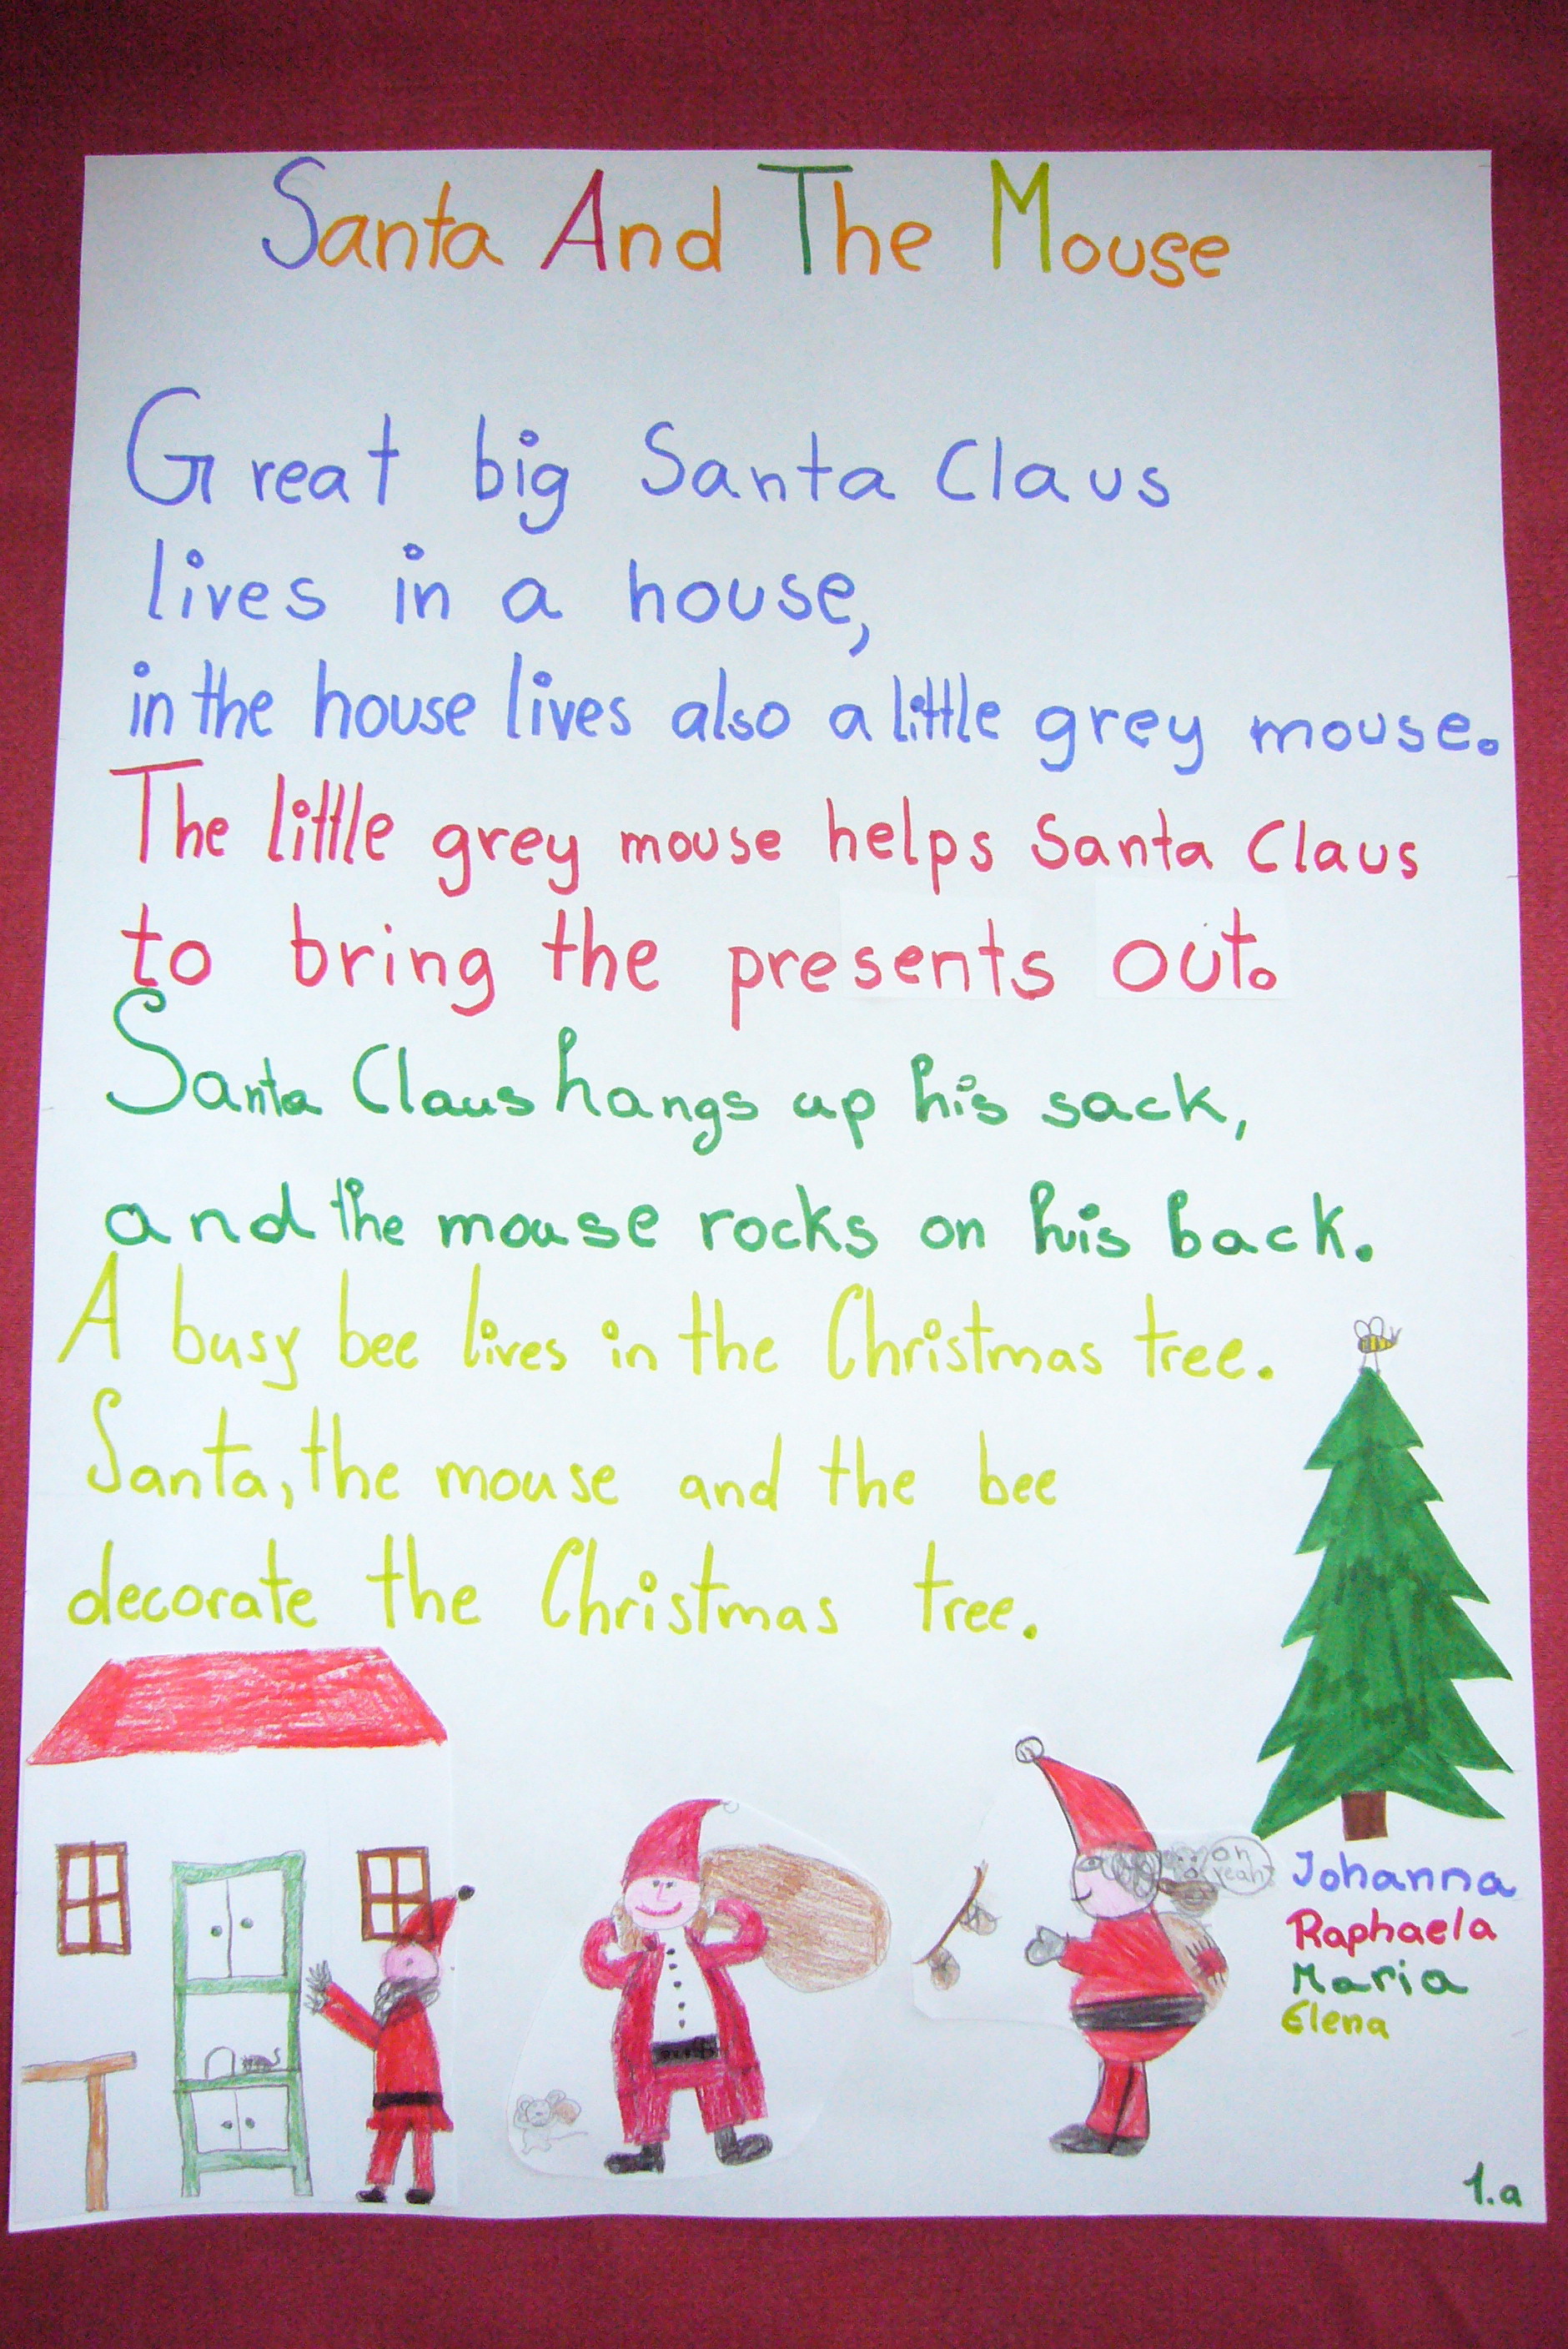 Santa And The Mouse
Great big Santa Claus
lives in a house,
in the house lives also a little grey mouse.
The little grey mouse helps Santa Claus
to bring the presents out.
Santa Claus hangs up his sack,
and the mouse rocks on his back.
A busy bee lives in the Christmas tree.
Santa, the mouse and the bee
decorate the Christmas tree.
oh
yeah
Johanna
Raphaela
Maria
Elena
1.a